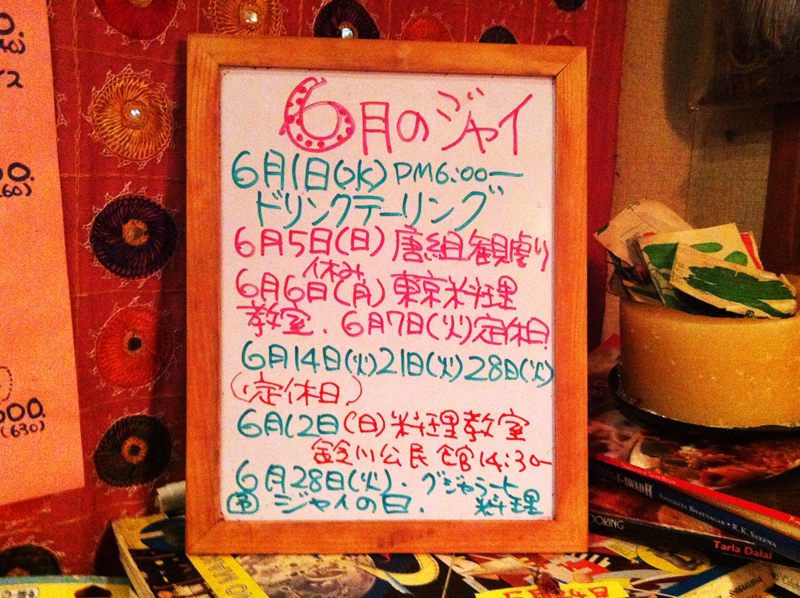 6月のジャイ
6月1日(水) PM6:00〜
ドリンクテーリング
6月5日(日)唐組観劇り
休み
6月6日(月)東京料理
教室. 6月7日(火)定休日
6月14日(火)21日(火)28日(火)
(定休日)
6月12日(日)料理教室
鈴川公民館14:30〜
6月28日(火).グジャラート
ジャイの日. 料理
000.
(630)
AWADH
SANGEETA BHATNAGAR • R.K. SAXENA
COOKING
Tarla Dalal